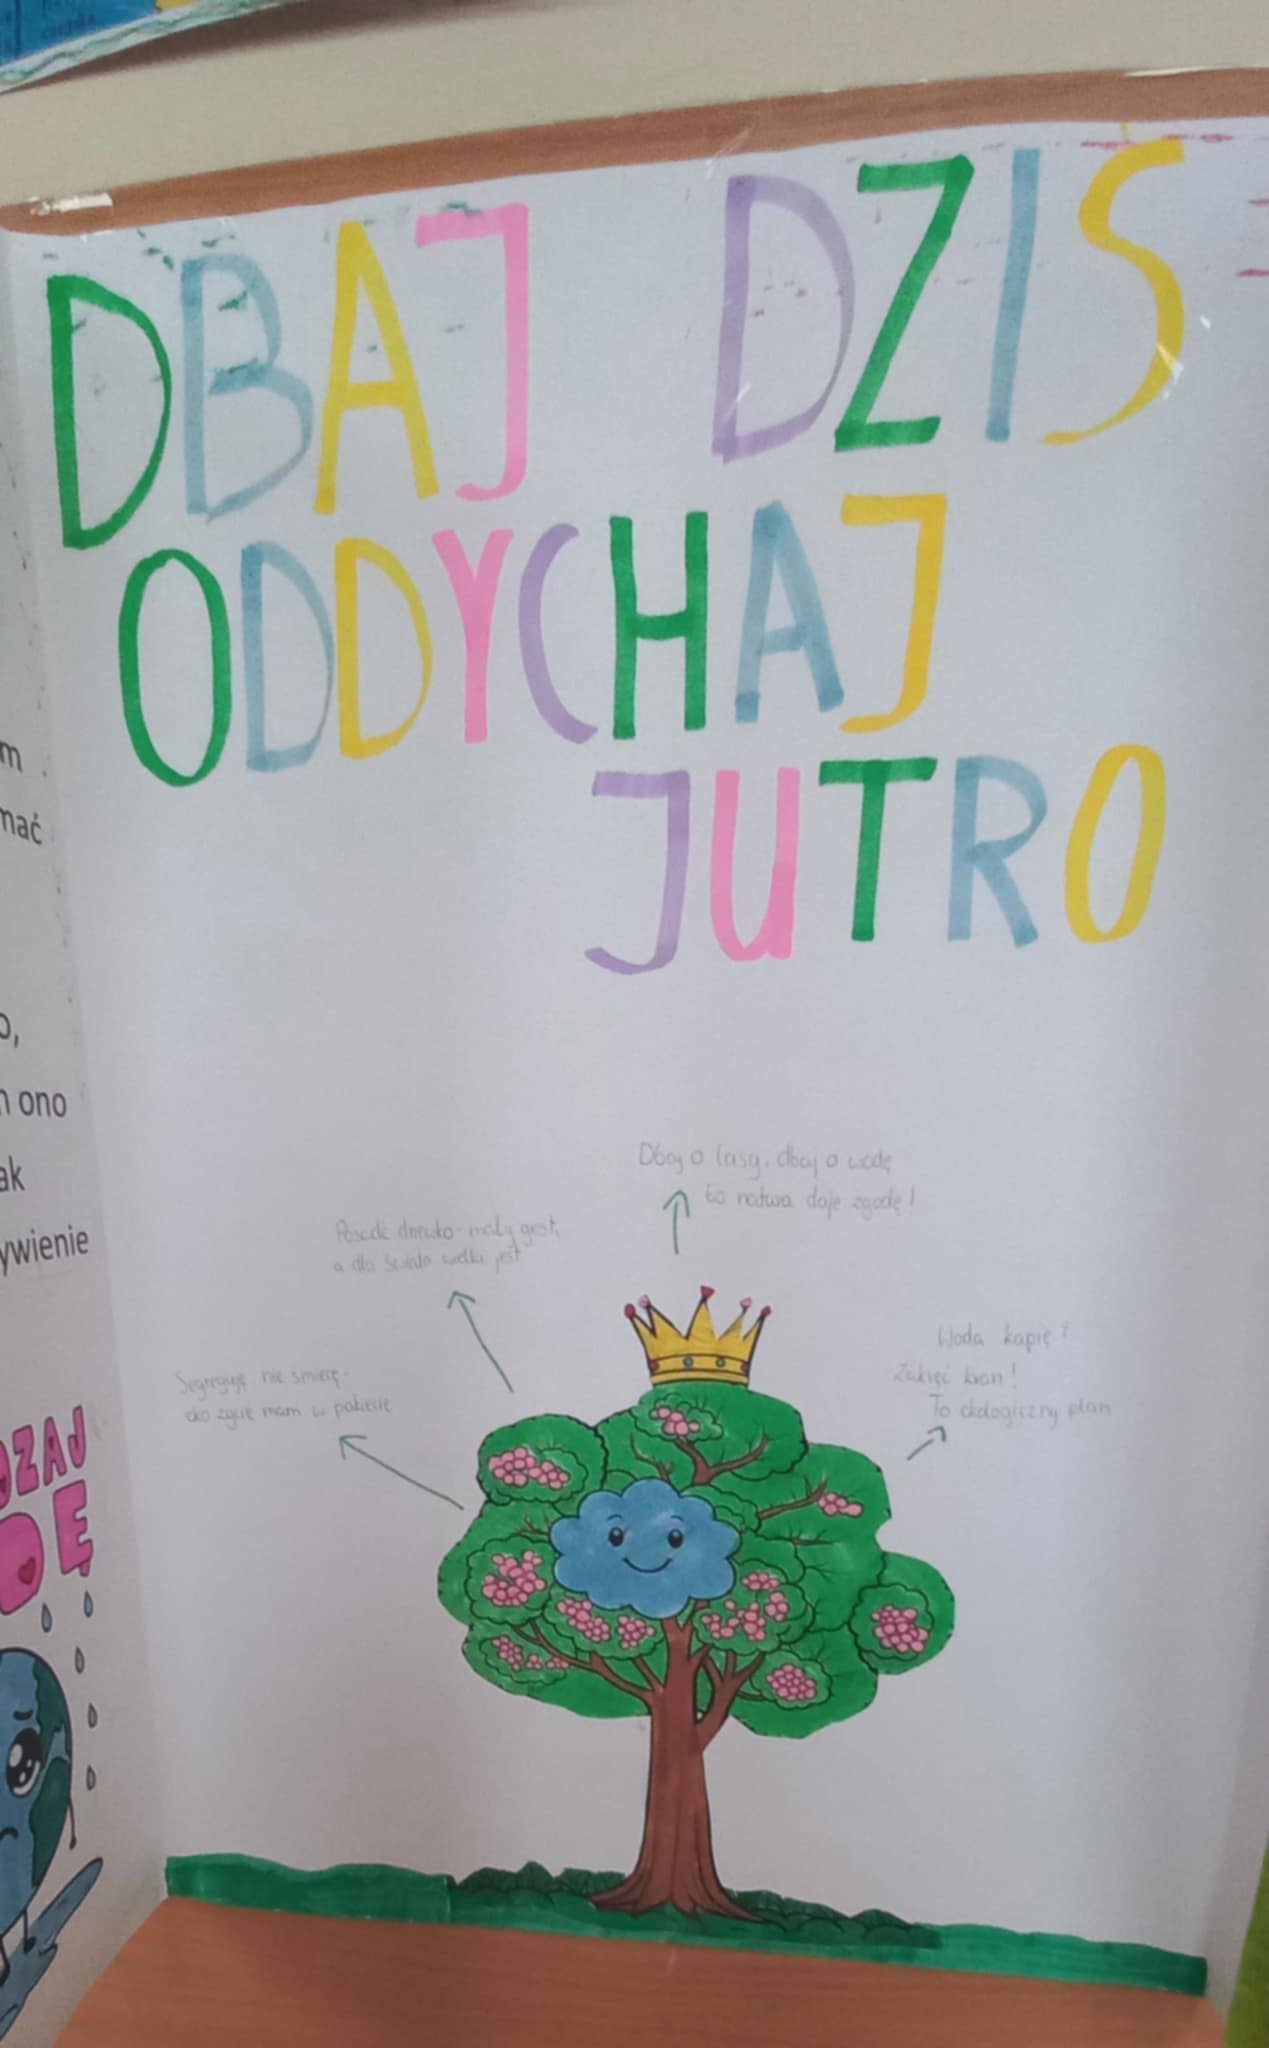 DBAJ DZIS
ODDYCHAJ
JUTRO
Dbaj o lasy, dbaj o wodę
to natura daje zgodę!
Posadź drzewko - mały gest,
a dla świata wielki jest
Woda kapie?
Zakręć kran!
To ekologiczny plan
Segreguję nie śmiecę -
eko życie mam w
m
mać
o,
n ono
ak
ywienie
DZAJ
DĘ